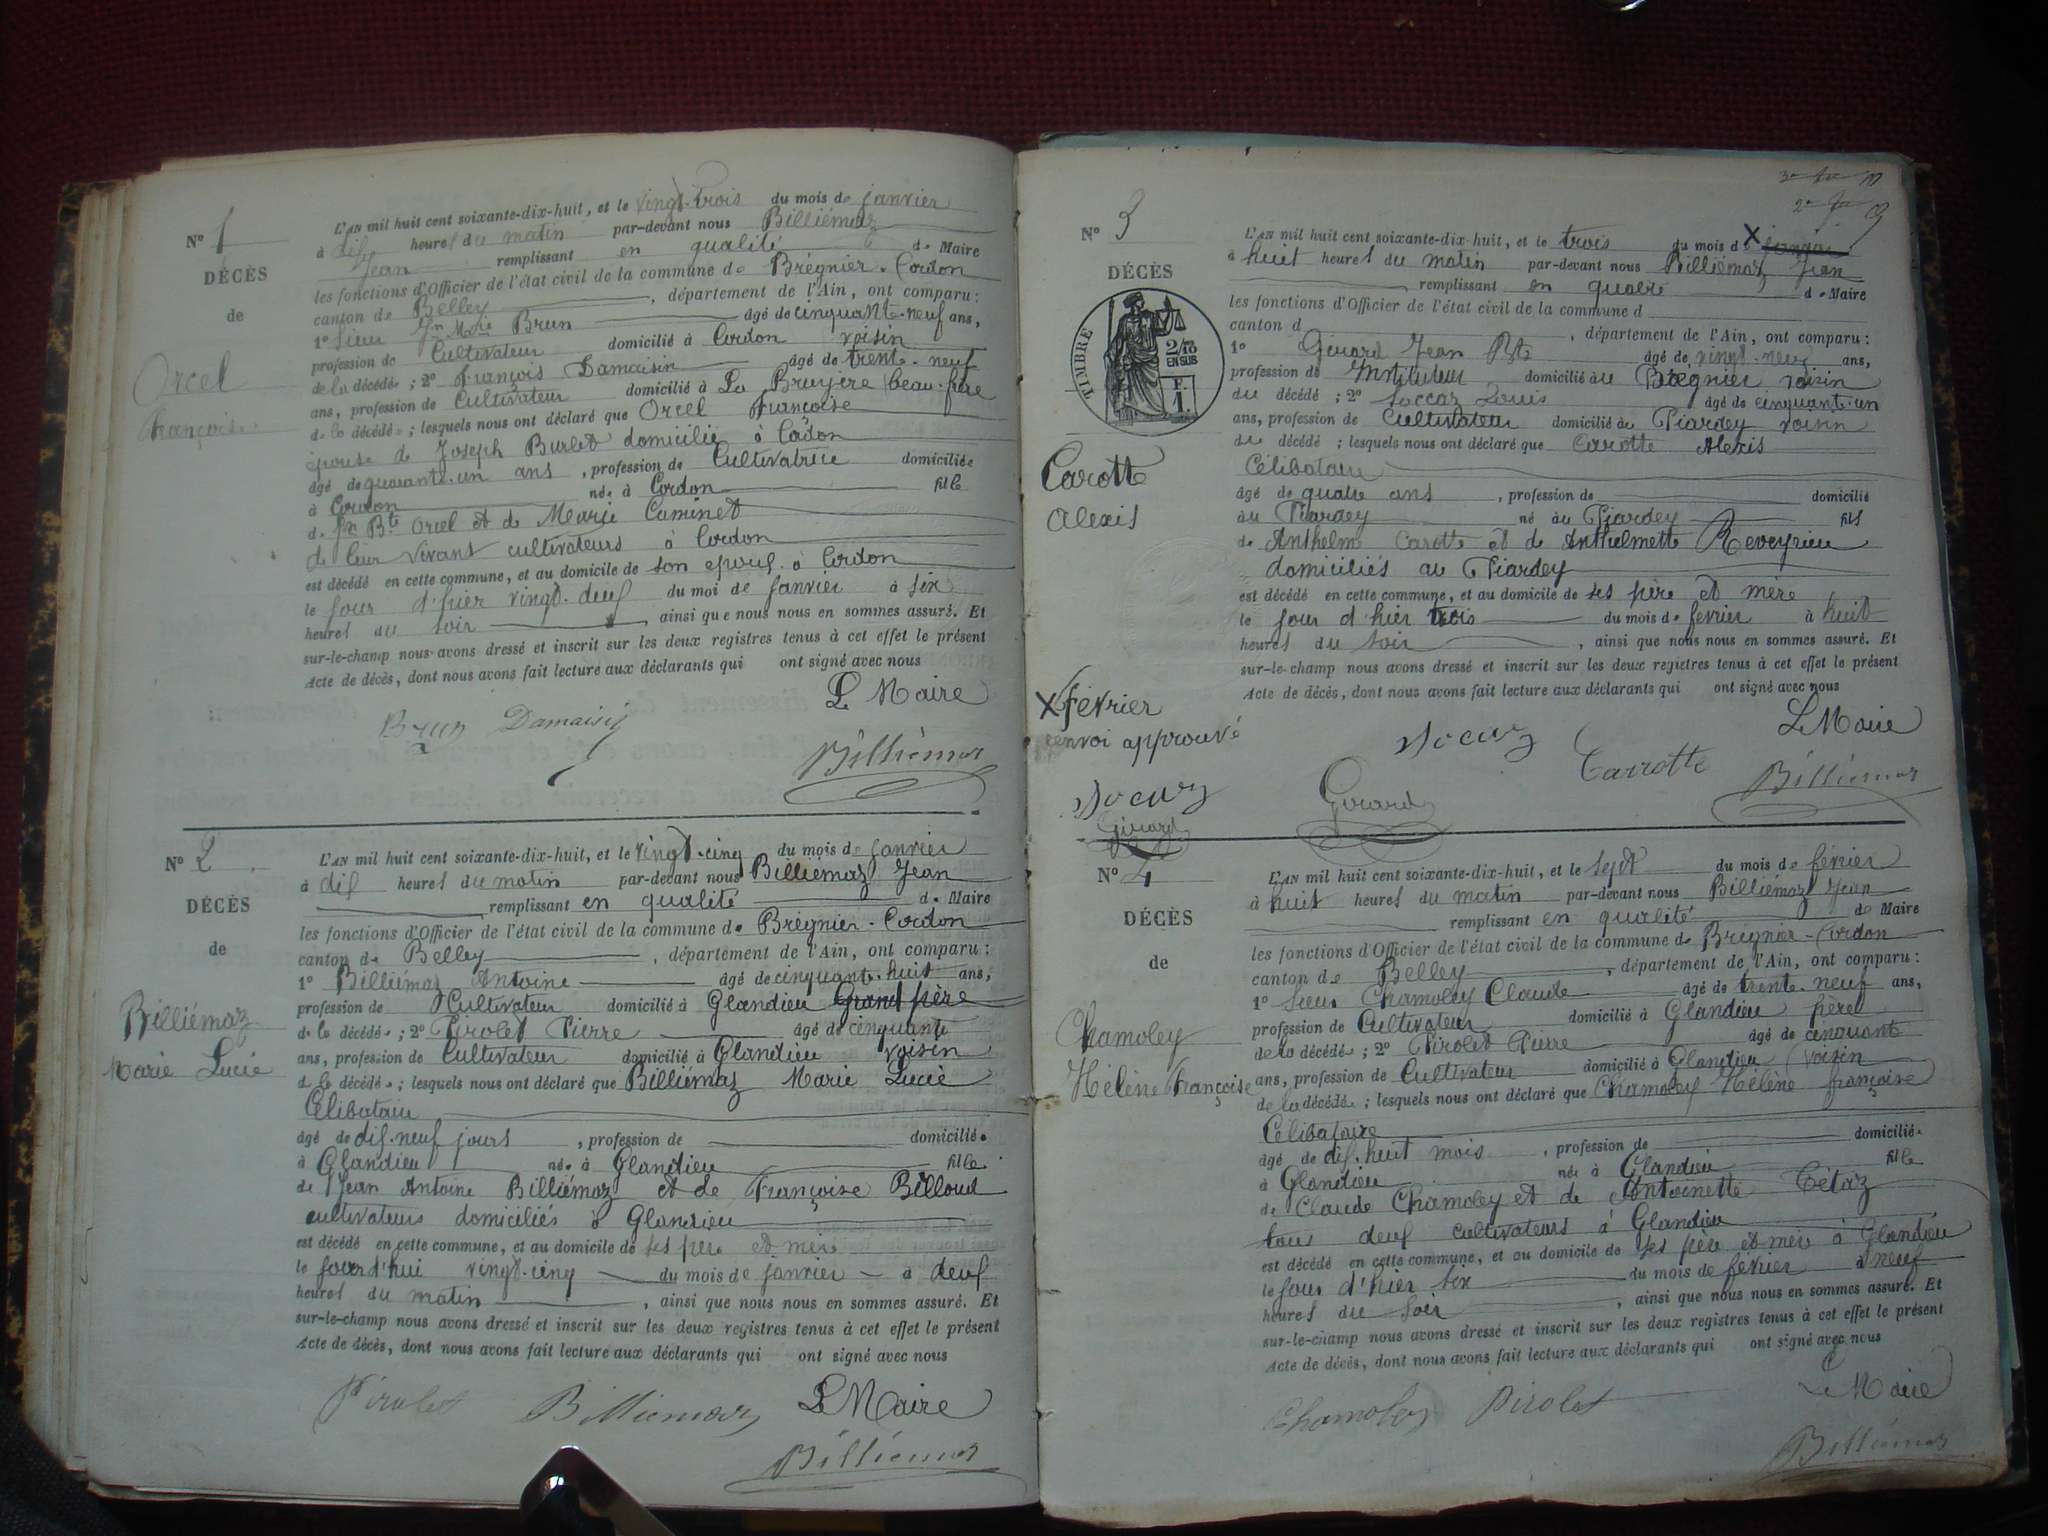 N° 1
DÉCÈS
de
Orcel
Françoise
L'AN mil huit cent soixante-dix-huit, et le vingt-trois du mois de janvier
à dix heures du matin par-devant nous Billiémaz
Jean remplissant en qualité de Maire
les fonctions d'Officier de l'état civil de la commune de Brégnier-Cordon
canton de Belley, département de l'Ain, ont comparu:
1° Sieur Brun âgé de cinquante-neuf ans,
profession de Cultivateur domicilié à Cordon voisin
de la décédée; 2° François Damaisin âgé de trente-neuf
ans, profession de Cultivateur domicilié à La Bruyère beau-frère
de la décédée; lesquels nous ont déclaré que Orcel Françoise
épouse de Joseph Burlet domicilié à Cordon
âgé de quarante-un ans, profession de Cultivatrice domiciliée
à Cordon née à Cordon fille
de Jn Bte Orcel et de Marie Cuminet
de leur vivant cultivateurs à Cordon
est décédé en cette commune, et au domicile de son époux à Cordon
le jour d'hier vingt-deux du moi de janvier à six
heures du soir ainsi que nous nous en sommes assuré. Et
sur-le-champ nous avons dressé et inscrit sur les deux registres tenus à cet effet le présent
Acte de décès, dont nous avons fait lecture aux déclarants qui ont signé avec nous
Le Maire
Brun Damaisin
Billiémaz
N° 2
DÉCÈS
de
Billiémaz
Marie Lucie
L'AN mil huit cent soixante-dix-huit, et le vingt-cinq du mois de janvier
à dix heures du matin par-devant nous Billiémaz Jean
remplissant en qualité de Maire
les fonctions d'Officier de l'état civil de la commune de Brégnier-Cordon
canton de Belley, département de l'Ain, ont comparu:
1° Billiémaz Antoine âgé de cinquante-huit ans,
profession de Cultivateur domicilié à Glandieu Grand père
de la décédée; 2° Pirolet Pierre âgé de cinquante
ans, profession de Cultivateur domicilié à Glandieu voisin
de la décédée; lesquels nous ont déclaré que Billiémaz Marie Lucie
Célibataire
âgé de dix-neuf jours, profession de domiciliée
à Glandieu née à Glandieu fille
de Jean Antoine Billiémaz et de Françoise Billoud
cultivateurs domiciliés à Glandieu
est décédé en cette commune, et au domicile de ses père et mère
le jourd'hui vingt-cinq du mois de janvier à deux
heures du matin, ainsi que nous nous en sommes assuré. Et
sur-le-champ nous avons dressé et inscrit sur les deux registres tenus à cet effet le présent
Acte de décès, dont nous avons fait lecture aux déclarants qui ont signé avec nous
Pirolet Billiemaz Le Maire
Billiémaz
N° 3
DÉCÈS
TIMBRE
2/10
EN SUS
F.
1.
Carotte
Alexis
X février
renvoi approuvé
Soccaz
Girard
L'AN mil huit cent soixante-dix-huit, et le trois du mois de X janvier
à huit heures du matin par-devant nous Billiémaz Jean
remplissant en qualité de Maire
les fonctions d'Officier de l'état civil de la commune d
canton d, département de l'Ain, ont comparu:
1° Girard Jean Bte âgé de vingt-neuf ans,
profession de Instituteur domicilié à Brégnier voisin
du décédé; 2° Soccaz Louis âgé de cinquante-un
ans, profession de Cultivateur domicilié au Piardey voisin
du décédé; lesquels nous ont déclaré que Carotte Alexis
Célibataire
âgé de quatre ans, profession de domicilié
au Piardey né au Piardey fils
de Anthelme Carotte et de Anthelmette Reveyrieu
domiciliés au Piardey
est décédé en cette commune, et au domicile de ses père et mère
le jour d'hier trois du mois de février à huit
heures du soir, ainsi que nous nous en sommes assuré. Et
sur-le-champ nous avons dressé et inscrit sur les deux registres tenus à cet effet le présent
Acte de décès, dont nous avons fait lecture aux déclarants qui ont signé avec nous
Le Maire
Soccaz Carrotte
Girard Billiémaz
N° 4
DÉCÈS
de
Chamoley
Hélène Françoise
L'AN mil huit cent soixante-dix-huit, et le sept du mois de février
à huit heures du matin par-devant nous Billiémaz Jean
remplissant en qualité de Maire
les fonctions d'Officier de l'état civil de la commune de Brégnier-Cordon
canton de Belley, département de l'Ain, ont comparu:
1° Sieur Chamoley Claude âgé de trente-neuf ans,
profession de Cultivateur domicilié à Glandieu père
de la décédée; 2° Pirolet Pierre âgé de cinquante
ans, profession de Cultivateur domicilié à Glandieu voisin
de la décédée; lesquels nous ont déclaré que Chamoley Hélène françoise
Célibataire
âgé de dix-huit mois, profession de domiciliée
à Glandieu née à Glandieu fille
de Claude Chamoley et de Antoinette Tétaz
tous deux cultivateurs à Glandieu
est décédé en cette commune, et au domicile de ses père et mère à Glandieu
le jour d'hier six du mois de février à neuf
heures du soir, ainsi que nous nous en sommes assuré. Et
sur-le-champ nous avons dressé et inscrit sur les deux registres tenus à cet effet le présent
Acte de décès, dont nous avons fait lecture aux déclarants qui ont signé avec nous
Chamoley Pirolet Le Maire
Billiémaz